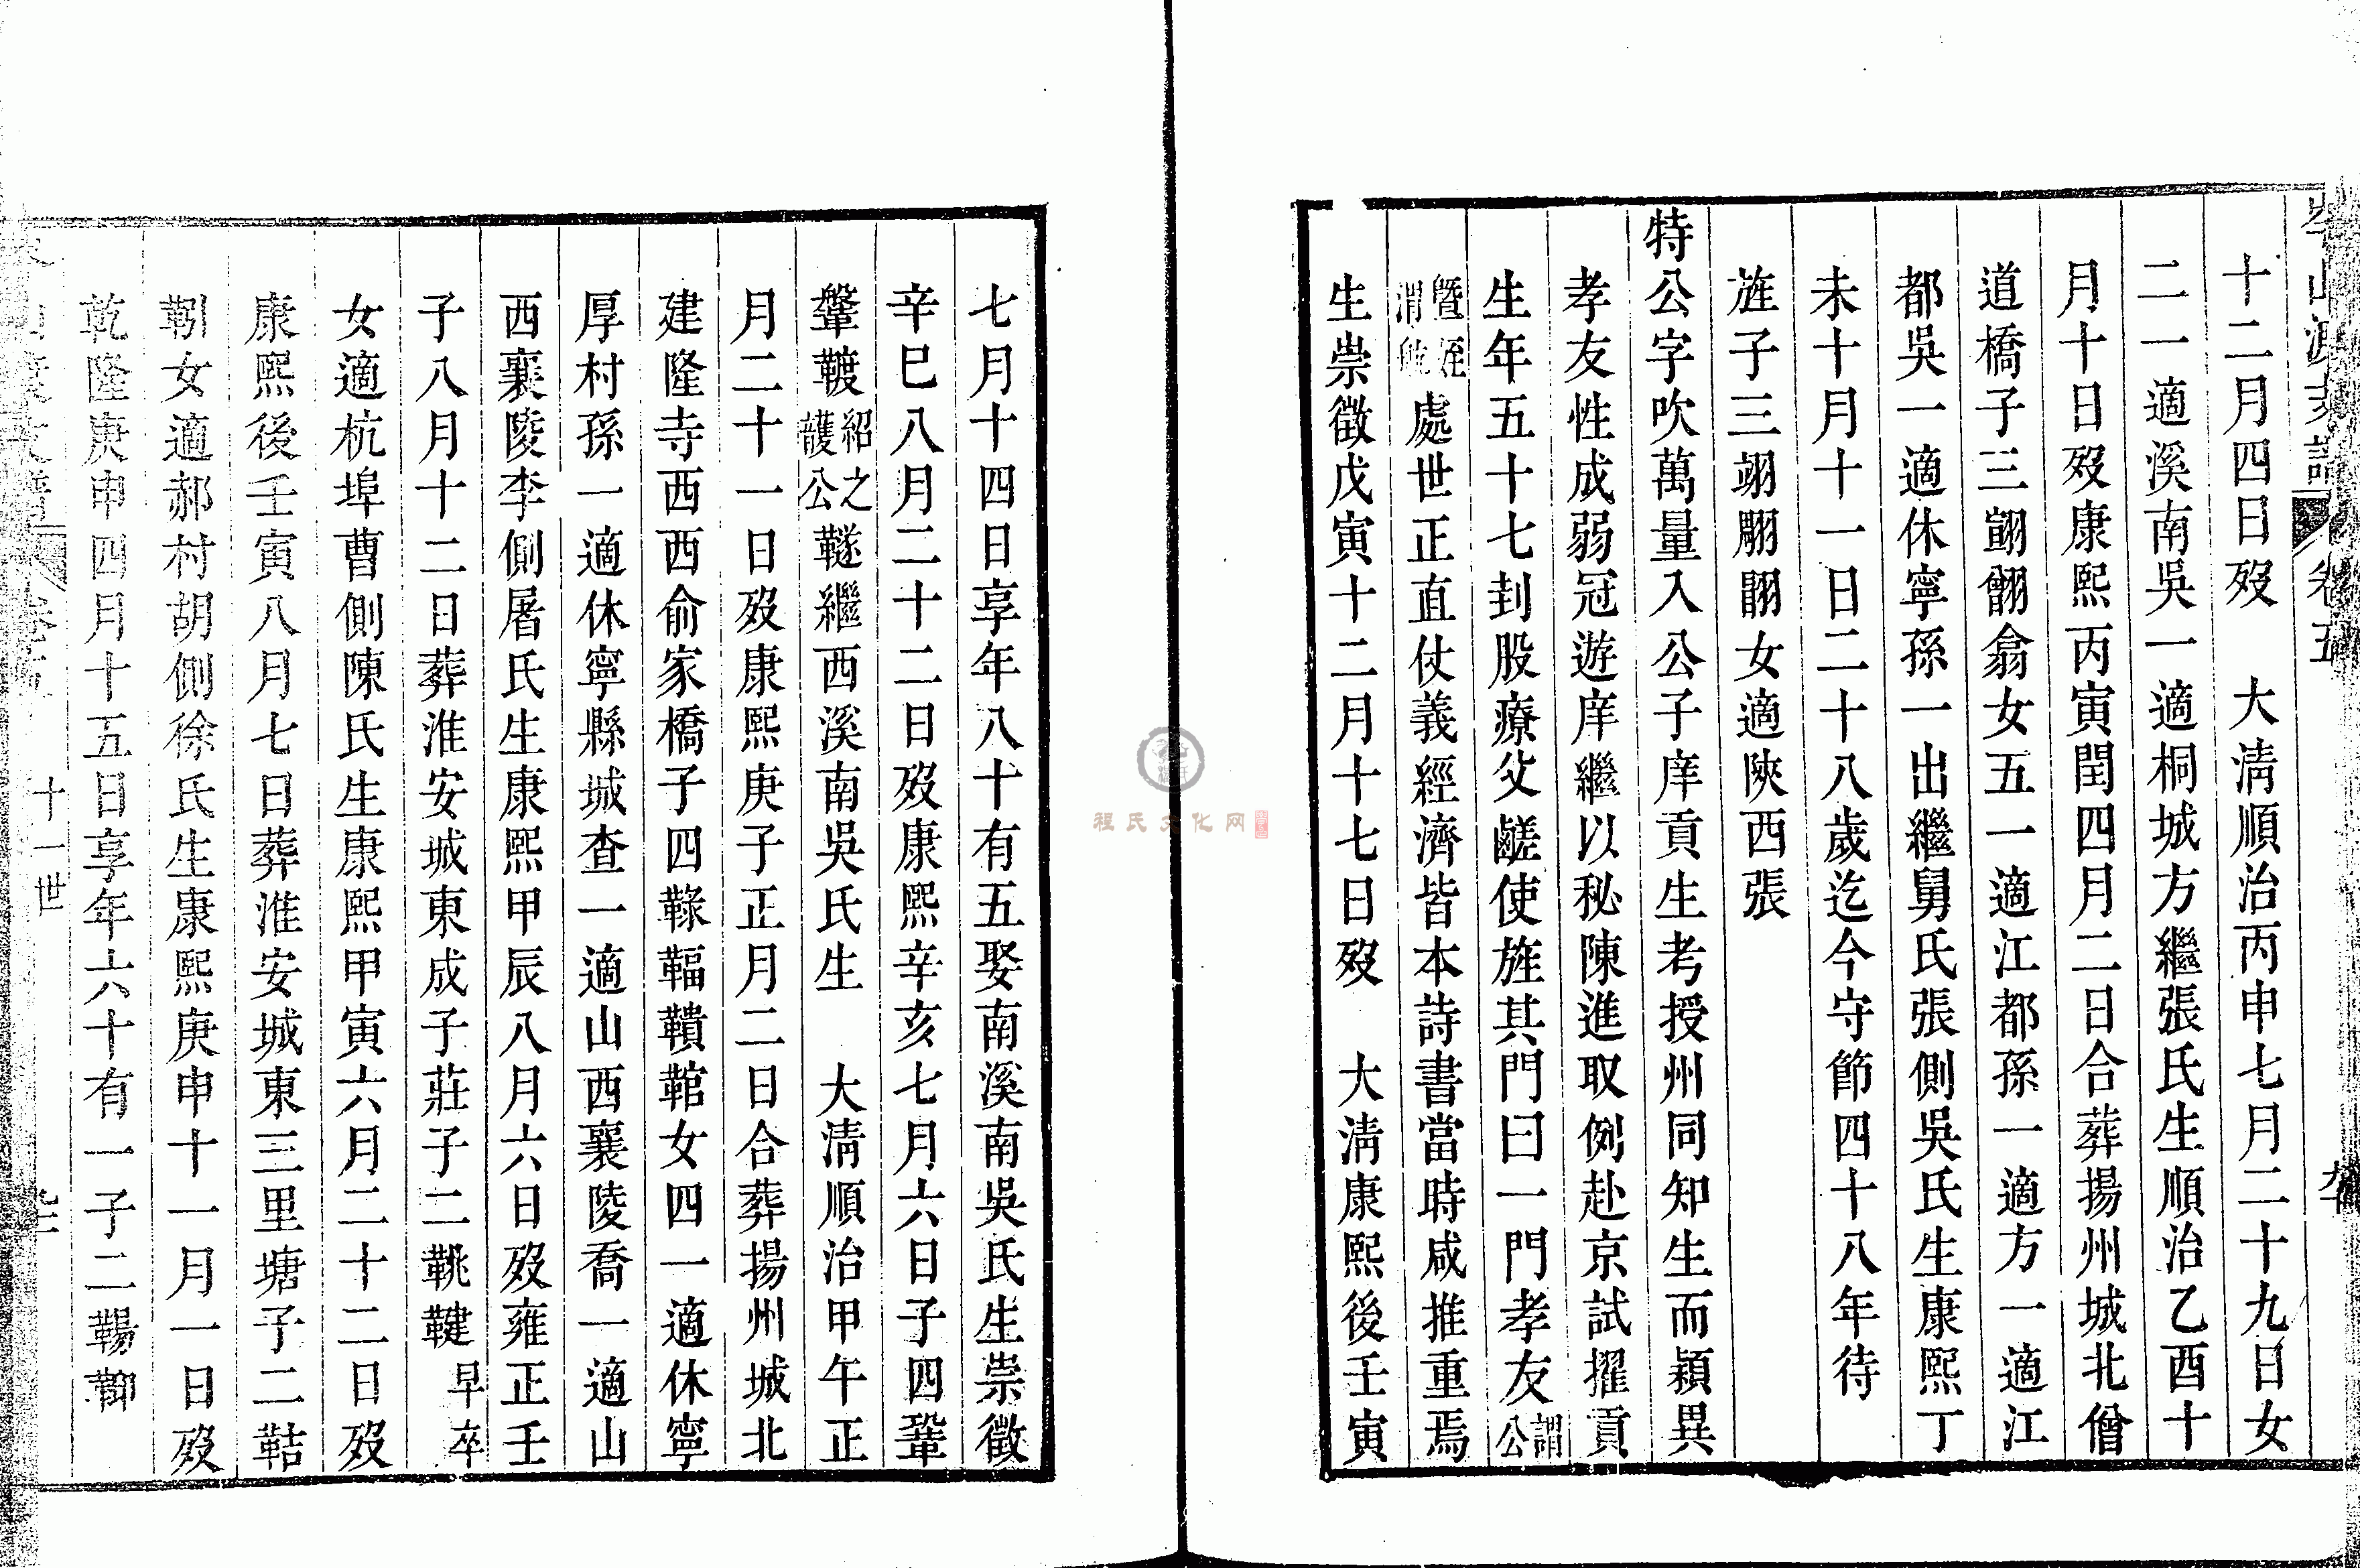 十二月四日歿　大淸順治丙申七月二十九日女
二一適溪南吳一適桐城方繼張氏生順治乙酉十
月十日歿康熙丙寅閏四月二日合葬揚州城北僧
道橋子三翮翱翕女五一適江都孫一適方一適江
都吳一適休寧孫一出繼舅氏張側吳氏生康熙丁
未十月十一日二十八歲迄今守節四十八年待
旌子三翊翢翾女適陝西張
特公字吹萬量入公子庠貢生考授州同知生而穎異
孝友性成弱冠遊庠繼以秘陳進取例赴京試擢貢
生年五十七刲股療父鹺使旌其門曰一門孝友謂公
曁姪渭航處世正直仗義經濟皆本詩書當時咸推重焉
生崇徵戊寅十二月十七日歿　大淸康熙後壬寅
七月十四日享年八十有五娶南溪南吳氏生崇徵
辛巳八月二十二日歿康熙辛亥七月六日子四鞏
鞶韄紹之頀公韢繼西溪南吳氏生　大淸順治甲午正
月二十一日歿康熙庚子正月二日合葬揚州城北
建隆寺西西俞家橋子四䩮鞴鞼䩪女四一適休寧
厚村孫一適休寧縣城查一適山西襄陵喬一適山
西襄陵李側屠氏生康熙甲辰八月六日歿雍正壬
子八月十二日葬淮安城東成子莊子二鞉鞬早卒
女適杭埠曹側陳氏生康熙甲寅六月二十二日歿
康熙後壬寅八月七日葬淮安城東三里塘子二鞊
靷女適郝村胡側徐氏生康熙庚申十一月一日歿
乾隆庚申四月十五日享年六十有一子二
卷五
十一世
程氏文化网